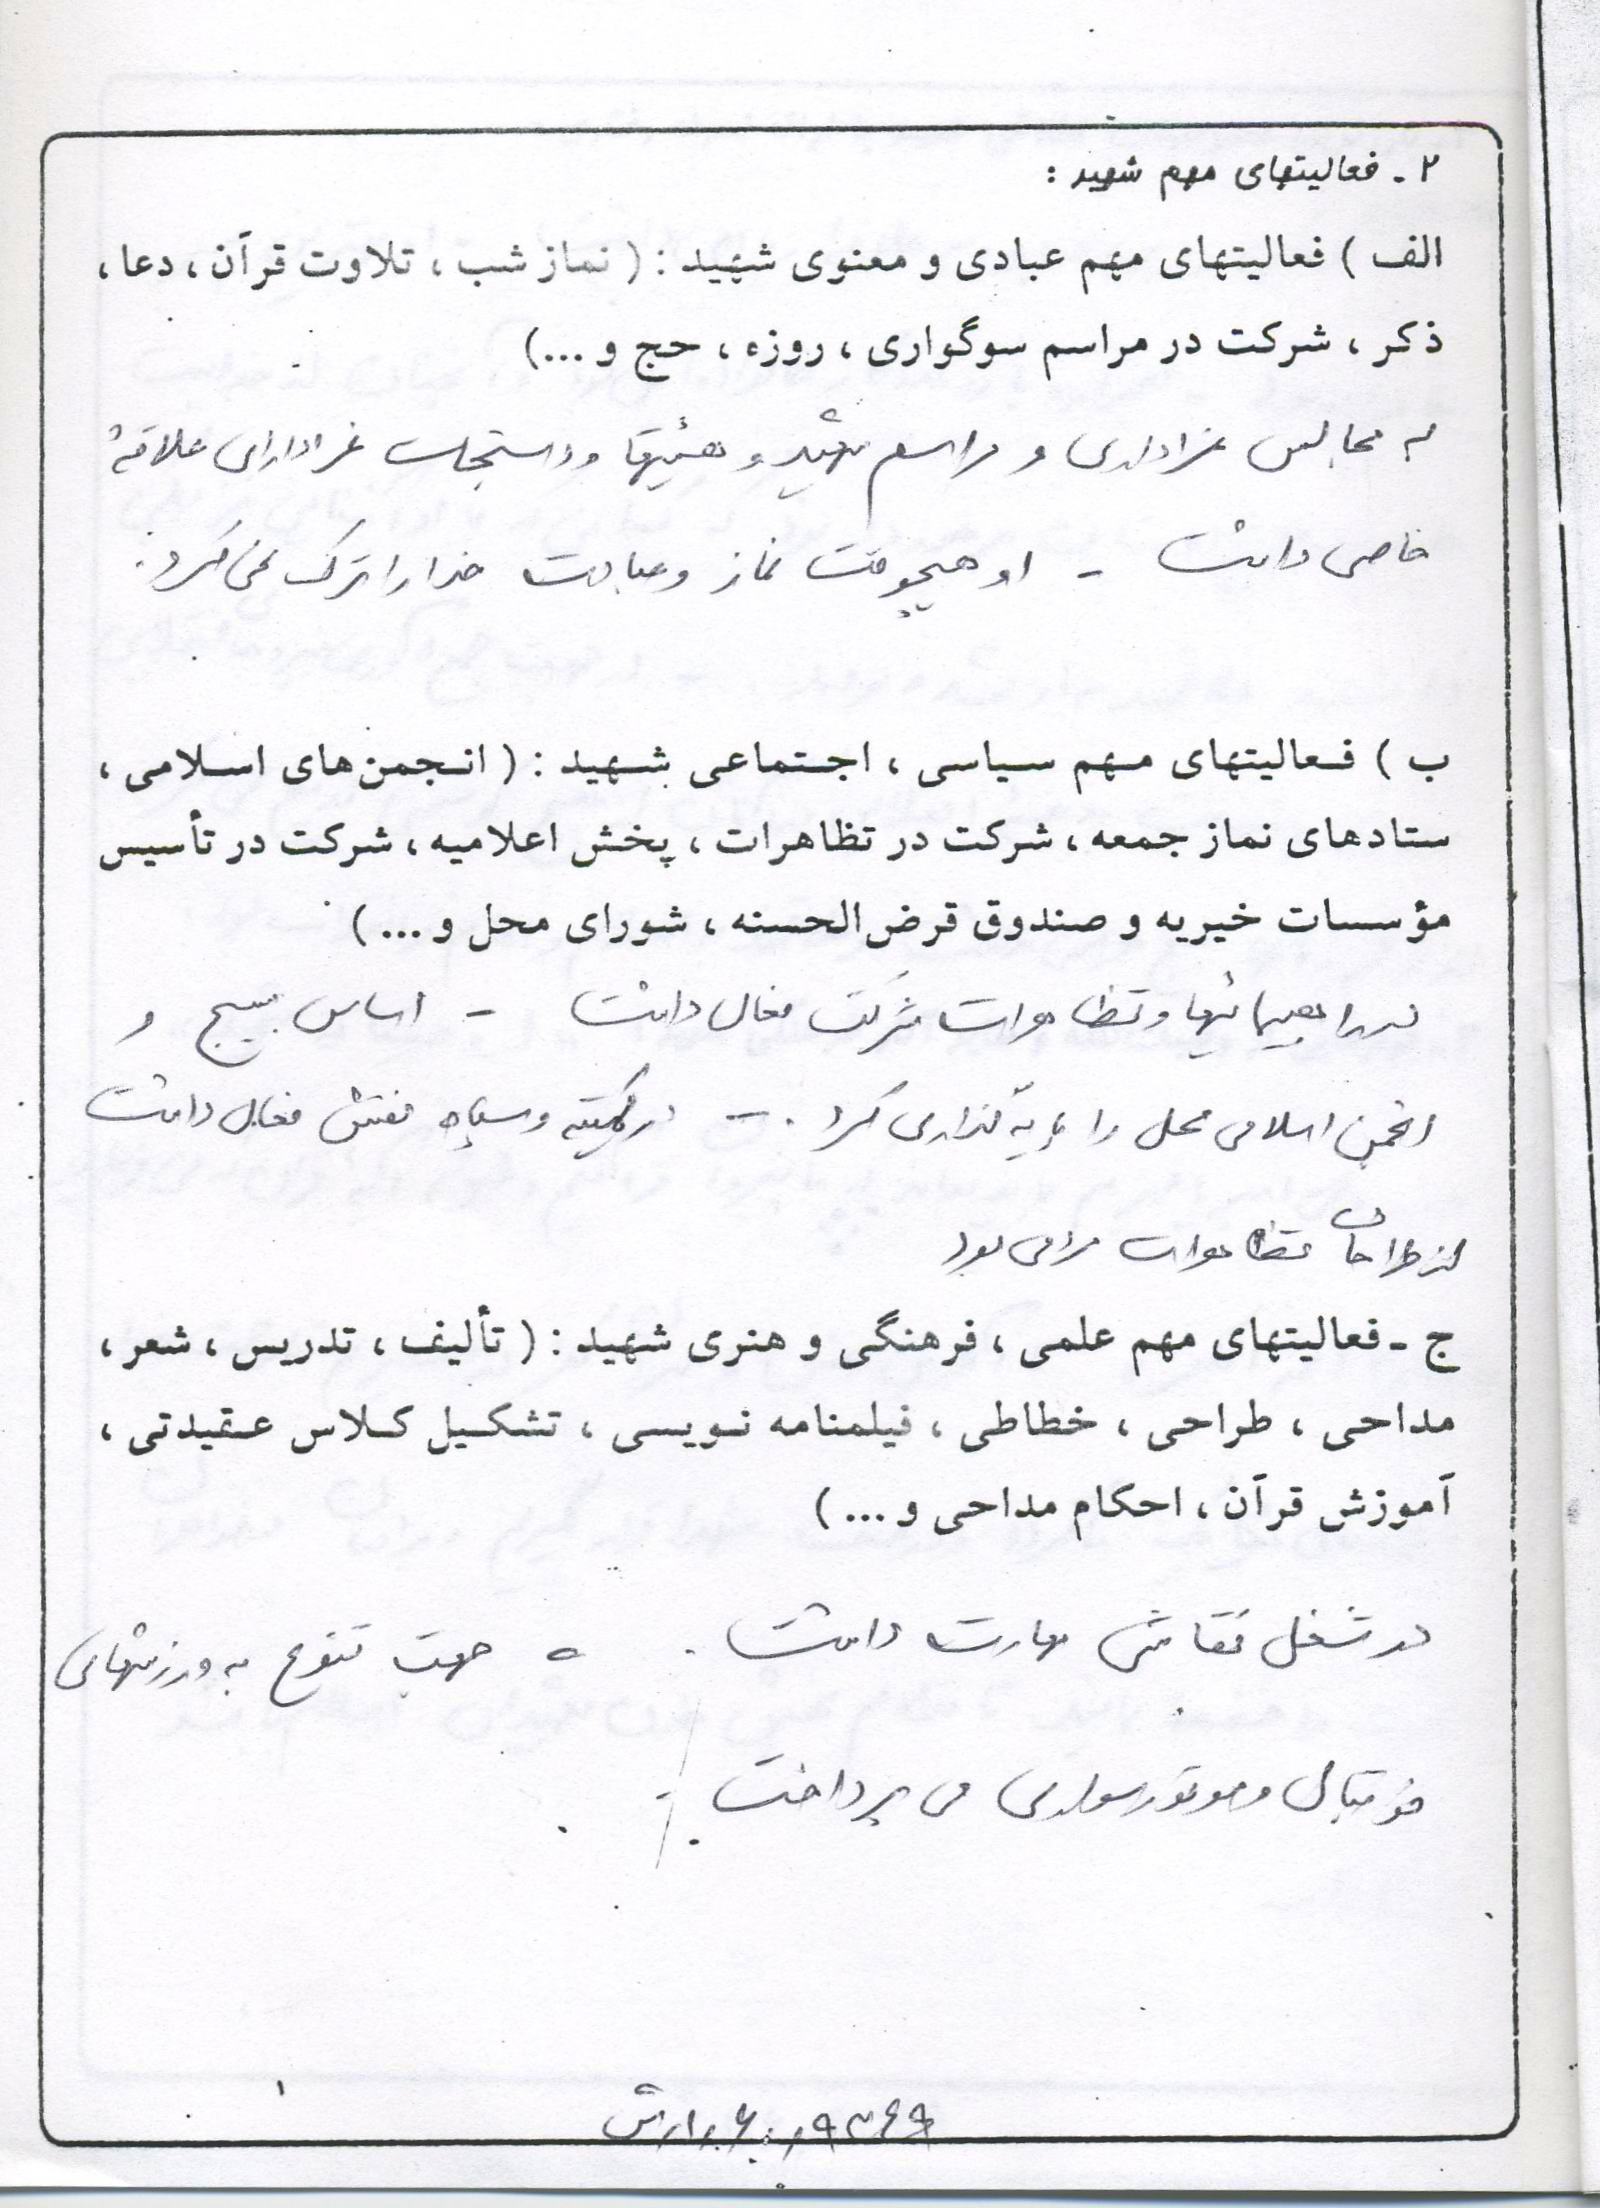 ۲ ـ فعالیتهای مهم شهید :
الف ) فعالیتهای مهم عبادی و معنوی شهید : ( نماز شب ، تلاوت قرآن ، دعا ،
ذکر ، شرکت در مراسم سوگواری ، روزه ، حج و ...)
به مجالس عزاداری و مراسم شهید و هیئتها و دستجات عزاداری علاقه
خاصی داشت - او هیچوقت نماز و عبادت خدا را ترک نمی کرد.
ب ) فعالیتهای مهم سیاسی ، اجتماعی شهید : ( انجمن‌های اسلامی ،
ستادهای نماز جمعه ، شرکت در تظاهرات ، پخش اعلامیه ، شرکت در تأسیس
مؤسسات خیریه و صندوق قرض‌الحسنه ، شورای محل و ... )
در راهپیمائیها و تظاهرات شرکت فعال داشت - اساس بسیج و
انجمن اسلامی محل را پایه گذاری کرد . - در کمیته و سپاه نقش فعال داشت
از طراحان تظاهرات مردمی بود
ج ـ فعالیتهای مهم علمی ، فرهنگی و هنری شهید : ( تألیف ، تدریس ، شعر ،
مداحی ، طراحی ، خطاطی ، فیلمنامه نویسی ، تشکیل کلاس عقیدتی ،
آموزش قرآن ، احکام مداحی و ... )
در شغل نقاشی مهارت داشت . جهت تنوع به ورزشهای
فوتبال و موتورسواری می پرداخت .